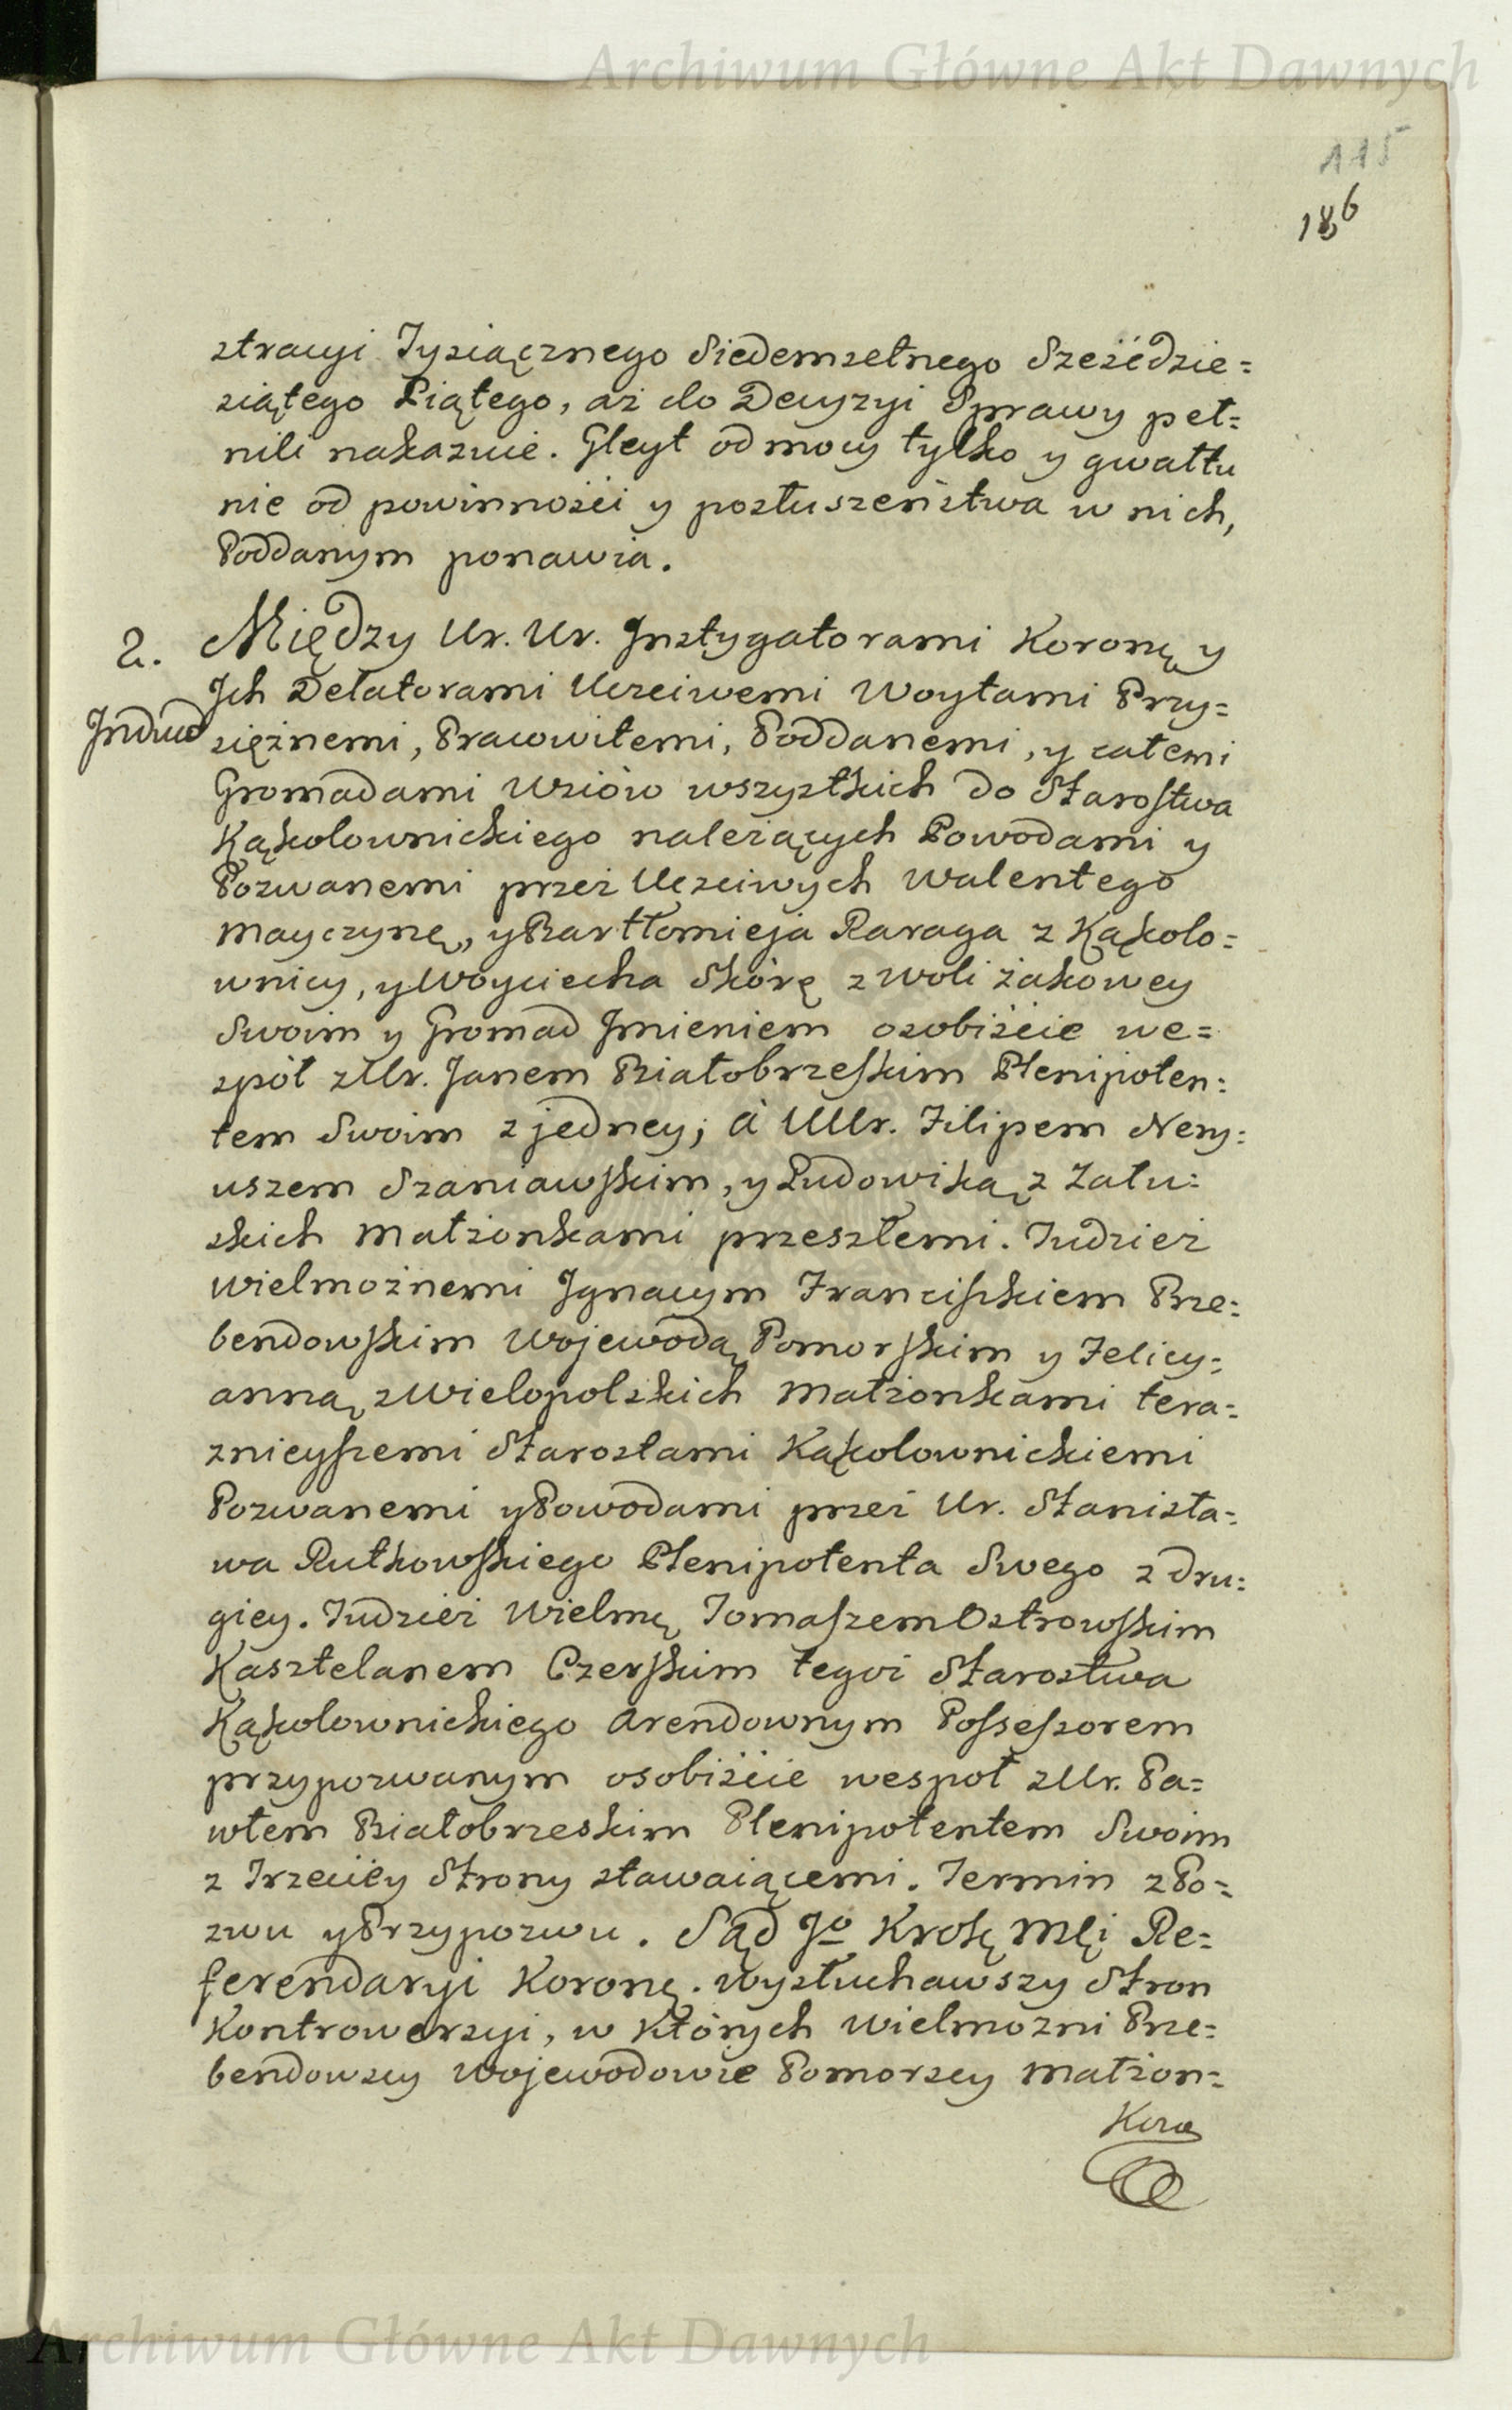 Archiwum Główne Akt Dawnych
115
186
stracyi Tysiącznego Siedemsetnego Sześćdzie=
siątego Piątego, aż do Decyzyi Sprawy peł=
nili nakazuie. Gleyt od mocy tylko y gwałtu
nie od powinności y posłuszeństwa w nich,
Poddanym ponawia.
2. Między Ur. Ur. Instygatorami Koronę y
Ich Delatorami Uczciwemi Woytami Przy=
Induc
siężnemi, Pracowitemi, Poddanemi, y całemi
Gromadami Wsiów wszystkich do Starostwa
Kąkolownickiego należących Powodami y
Pozwanemi przez Uczciwych Walentego
Mayczynę, y Bartłomieja Raraga z Kąkolo=
wnicy, y Woyciecha Skórę z Woli żakowey
Swoim y Gromad Imieniem osobiście we=
spół z Ur. Janem Białobrzeskim Plenipoten=
tem Swoim z jedney; á UUr. Filipem Nery=
uszem Szaniawskim, y Ludowiką z Zału=
skich Małżonkami przeszłemi. Tudzież
Wielmożnemi Ignacym Franciszkiem Prze=
bendowskim Wojewodą Pomorskim y Felicy=
anną z Wielopolskich Małżonkami tera=
znieyszemi Starostami Kąkolownickiemi
Pozwanemi y Powodami przez Ur. Stanisła=
wa Rutkowskiego Plenipotenta Swego z dru=
giey. Tudzież Wielmę Tomaszem Ostrowskim
Kasztelanem Czerskim tegoż Starostwa
Kąkolownickiego Arendownym Possessorem
przypozwanym osobiście wespoł z Ur. Pa=
włem Białobrzeskim Plenipotentem Swoim
z Trzeciey Strony stawaiącemi. Termin z Po=
zwu y Przypozwu. Sąd Jo Krolę Mći Re=
ferendaryi Koronę. wysłuchawszy Stron
Kontrowersyi, w których Wielmożni Prze=
bendowscy Wojewodowie Pomorscy Małżon=
Archiwum Główne Akt Dawnych